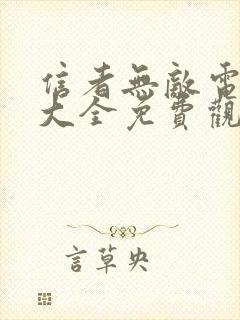 信者無敵電
大全免費觀
言草央